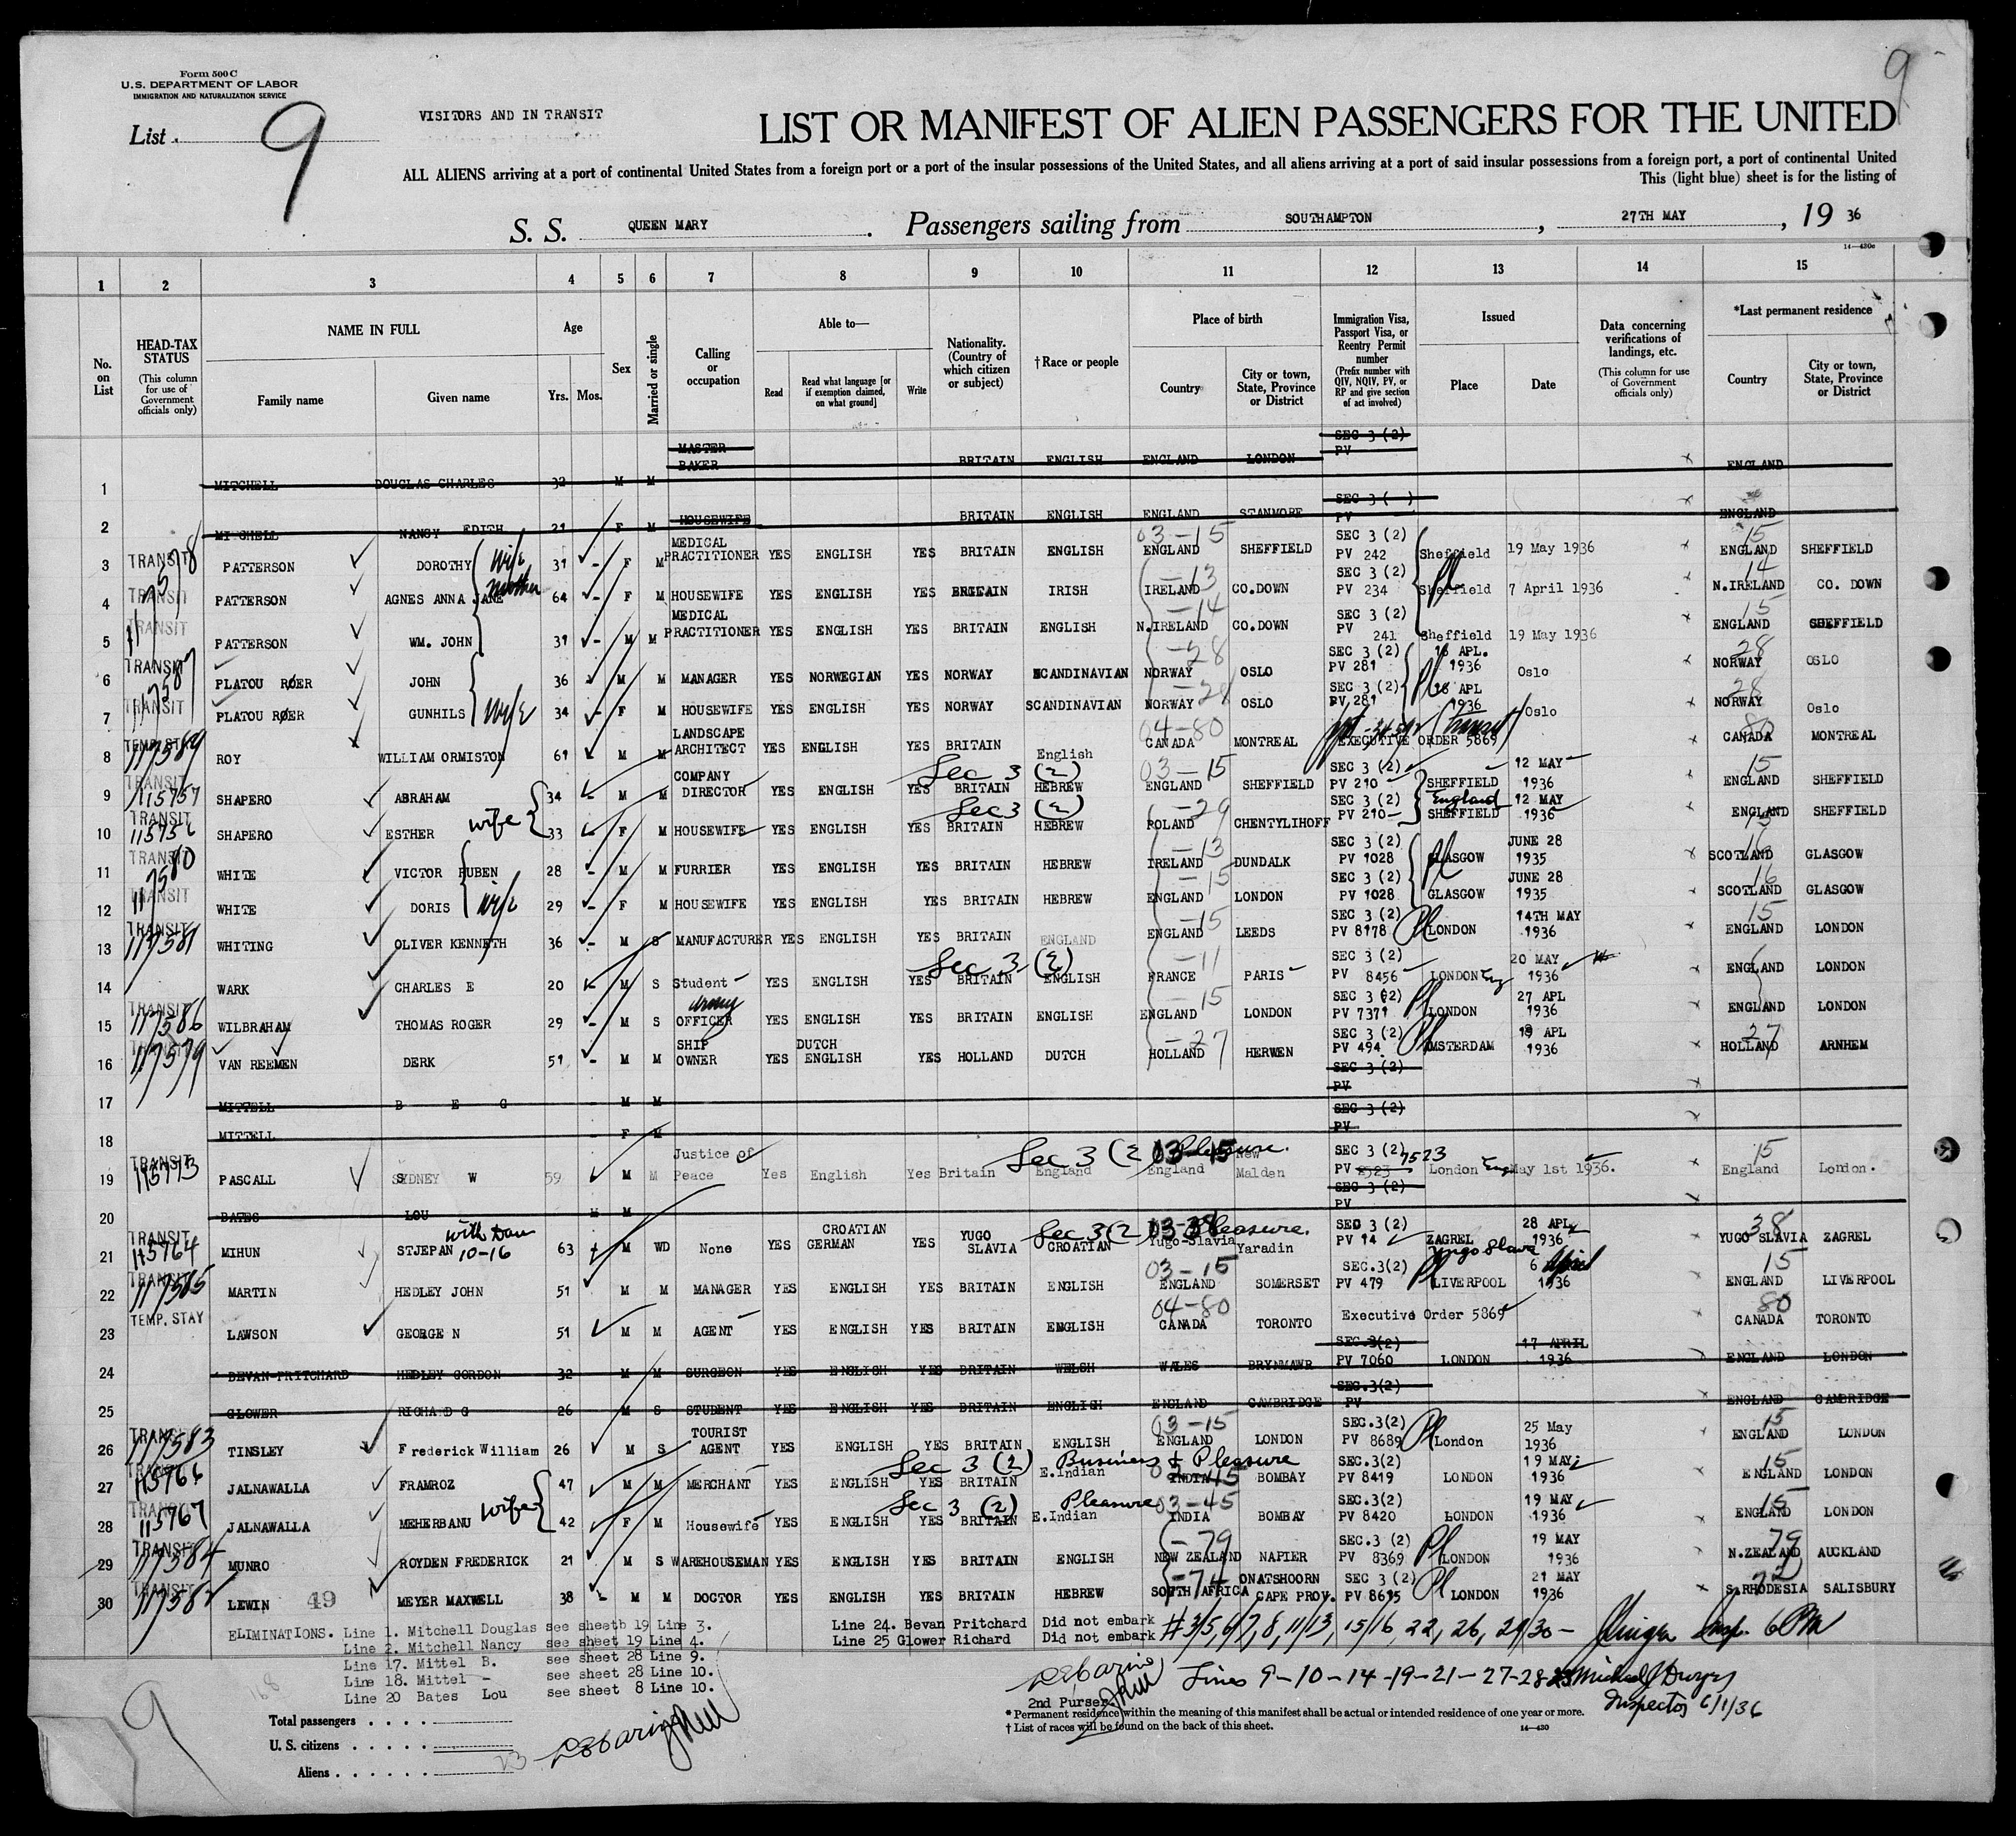 Form 500 C
U.S. DEPARTMENT OF LABOR
IMMIGRATION AND NATURALIZATION SERVICE
List 9
9
VISITORS AND IN TRANSIT
LIST OR MANIFEST OF ALIEN PASSENGERS FOR THE UNITED
ALL ALIENS arriving at a port of continental United States from a foreign port or a port of the insular possessions of the United States, and all aliens arriving at a port of said insular possessions from a foreign port, a port of continental United
This (light blue) sheet is for the listing of
S. S. QUEEN MARY. Passengers sailing from SOUTHAMPTON, 27TH MAY, 19 36
14—430c
1 2 3 4 5 6 7 8 9 10 11 12 13 14 15
No. on List
HEAD-TAX STATUS (This column for use of Government officials only)
NAME IN FULL Family name Given name
Age Yrs. Mos.
Sex
Married or single
Calling or occupation
Able to— Read Read what language [or if exemption claimed, on what ground] Write
Nationality. (Country of which citizen or subject)
†Race or people
Place of birth Country City or town, State, Province or District
Immigration Visa, Passport Visa, or Reentry Permit number (Prefix number with QIV, NQIV, PV, or RP and give section of act involved)
Issued Place Date
Data concerning verifications of landings, etc. (This column for use of Government officials only)
*Last permanent residence Country City or town, State, Province or District
1 MITCHELL DOUGLAS CHARLES 32 M M MASTER BAKER BRITAIN ENGLISH ENGLAND LONDON SEC 3 (2) PV ENGLAND
2 MITCHELL NANCY EDITH 21 F M HOUSEWIFE BRITAIN ENGLISH ENGLAND STANMORE SEC 3 ( ) PV ENGLAND
3 TRANSIT PATTERSON DOROTHY wife 31 F M MEDICAL PRACTITIONER YES ENGLISH YES BRITAIN ENGLISH 03-15 ENGLAND SHEFFIELD SEC 3 (2) PV 242 Sheffield 19 May 1936 15 ENGLAND SHEFFIELD
4 TRANSIT PATTERSON AGNES ANNA JANE mother 64 F M HOUSEWIFE YES ENGLISH YES IRISH -13 IRELAND CO.DOWN SEC 3 (2) PV 234 Sheffield 7 April 1936 14 N.IRELAND CO. DOWN
5 TRANSIT PATTERSON WM. JOHN 31 M M MEDICAL PRACTITIONER YES ENGLISH YES BRITAIN ENGLISH -14 N.IRELAND CO.DOWN SEC 3 (2) PV 241 Sheffield 19 May 1936 15 ENGLAND SHEFFIELD
6 TRANSIT PLATOU RØER JOHN 36 M M MANAGER YES NORWEGIAN YES NORWAY SCANDINAVIAN -28 NORWAY OSLO SEC 3 (2) PV 281 APL. 1936 Oslo 28 NORWAY OSLO
7 TRANSIT PLATOU RØER GUNHILS wife 34 F M HOUSEWIFE YES ENGLISH YES NORWAY SCANDINAVIAN -28 NORWAY OSLO SEC 3 (2) PV 281 APL 1936 Oslo 28 NORWAY Oslo
8 117589 ROY WILLIAM ORMISTON 61 M M LANDSCAPE ARCHITECT YES ENGLISH YES BRITAIN English 04-80 CANADA MONTREAL EXECUTIVE ORDER 5869 80 CANADA MONTREAL
9 TRANSIT 115757 SHAPERO ABRAHAM 34 M M COMPANY DIRECTOR YES ENGLISH YES BRITAIN Sec 3 (2) HEBREW 03-15 ENGLAND SHEFFIELD SEC 3 (2) PV 210 SHEFFIELD 12 MAY 1936 15 ENGLAND SHEFFIELD
10 TRANSIT 115756 SHAPERO ESTHER wife 33 F M HOUSEWIFE YES ENGLISH YES BRITAIN Sec 3 (2) HEBREW -29 POLAND CHENTYLIHOFF SEC 3 (2) PV 210 SHEFFIELD England 12 MAY 1936 15 ENGLAND SHEFFIELD
11 TRANSIT WHITE VICTOR RUBEN 28 M M FURRIER YES ENGLISH YES BRITAIN HEBREW -13 IRELAND DUNDALK SEC 3 (2) PV 1028 GLASGOW JUNE 28 1935 16 SCOTLAND GLASGOW
12 TRANSIT WHITE DORIS wife 29 F M HOUSEWIFE YES ENGLISH YES BRITAIN HEBREW -15 ENGLAND LONDON SEC 3 (2) PV 1028 GLASGOW JUNE 28 1935 16 SCOTLAND GLASGOW
13 TRANSIT 117581 WHITING OLIVER KENNETH 36 M S MANUFACTURER YES ENGLISH YES BRITAIN ENGLAND -15 ENGLAND LEEDS SEC 3 (2) PV 8178 LONDON 14TH MAY 1936 15 ENGLAND LONDON
14 WARK CHARLES E 20 M S Student YES ENGLISH YES BRITAIN Sec 3 (2) ENGLISH -11 FRANCE PARIS SEC 3 (2) PV 8456 LONDON Eng 20 MAY 1936 ENGLAND LONDON
15 TRANSIT 117586 WILBRAHAM THOMAS ROGER 29 M S Army OFFICER YES ENGLISH YES BRITAIN ENGLISH -15 ENGLAND LONDON SEC 3 (2) PV 7371 LONDON 27 APL 1936 ENGLAND LONDON
16 117579 VAN REEMEN DERK 51 M M SHIP OWNER YES DUTCH ENGLISH YES HOLLAND DUTCH -27 HOLLAND HERWEN SEC 3 (2) PV 494 AMSTERDAM APL 1936 27 HOLLAND ARNHEM
17 MITTELL B E G M M SEC 3 (2) PV
18 MITTELL F M SEC 3 (2) PV
19 TRANSIT 115773 PASCALL SYDNEY W 59 M M Justice of Peace Yes English Yes Britain Sec 3 (2) Pleasure. England 03-15 England New Malden SEC 3 (2) PV 7523 London Eng May 1st 1936. 15 England London.
20 BATES LOU M M SEC 3 (2) PV
21 TRANSIT 115764 MIHUN STJEPAN with Dau 10-16 63 M WD None YES CROATIAN GERMAN YES YUGO SLAVIA Sec 3 (2) Pleasure. CROATIAN 03-38 Yugo-Slavia Yaradin SEC 3 (2) PV 14 ZAGREL Yugo Slavia 28 APL 1936 38 YUGO SLAVIA ZAGREL
22 TRANSIT 117585 MARTIN HEDLEY JOHN 51 M M MANAGER YES ENGLISH YES BRITAIN ENGLISH 03-15 ENGLAND SOMERSET SEC.3(2) PV 479 LIVERPOOL 6 April 1936 15 ENGLAND LIVERPOOL
23 TEMP. STAY LAWSON GEORGE N 51 M M AGENT YES ENGLISH YES BRITAIN ENGLISH 04-80 CANADA TORONTO Executive Order 5869 80 CANADA TORONTO
24 BEVAN-PRITCHARD HEDLEY GORDON 32 M M SURGEON YES ENGLISH YES BRITAIN WELSH WALES BRYNMAWR SEC.3(2) PV 7060 LONDON 17 APRIL 1936 ENGLAND LONDON
25 GLOWER RICHARD G 26 M S STUDENT YES ENGLISH YES BRITAIN ENGLISH ENGLAND CAMBRIDGE SEC.3(2) PV ENGLAND CAMBRIDGE
26 TRANSIT 117583 TINSLEY Frederick William 26 M S TOURIST AGENT YES ENGLISH YES BRITAIN ENGLISH 03-15 ENGLAND LONDON SEC.3(2) PV 8689 London 25 May 1936 15 ENGLAND LONDON
27 115766 JALNAWALLA FRAMROZ 47 M M MERCHANT YES ENGLISH YES BRITAIN Sec 3 (2) Business & Pleasure E.Indian INDIA 45 BOMBAY SEC.3(2) PV 8419 LONDON 19 MAY 1936 15 ENGLAND LONDON
28 TRANSIT 115767 JALNAWALLA MEHERBANU wife 42 F M Housewife YES ENGLISH YES BRITAIN Sec 3 (2) Pleasure E.Indian 03-45 INDIA BOMBAY SEC.3(2) PV 8420 LONDON 19 MAY 1936 15 ENGLAND LONDON
29 TRANSIT 117584 MUNRO ROYDEN FREDERICK 21 M S WAREHOUSEMAN YES ENGLISH YES BRITAIN ENGLISH -79 NEW ZEALAND NAPIER SEC.3 (2) PV 8369 LONDON 19 MAY 1936 79 N.ZEALAND AUCKLAND
30 TRANSIT 117582 LEWIN 49 MEYER MAXWELL 38 M M DOCTOR YES ENGLISH YES BRITAIN HEBREW -74 SOUTH AFRICA ONATSHOORN CAPE PROV. SEC 3 (2) PV 8615 LONDON 21 MAY 1936 S.RHODESIA SALISBURY
ELIMINATIONS. Line 1. Mitchell Douglas see sheetb 19 Line 3.
Line 2. Mitchell Nancy see sheet 19 Line 4.
Line 17. Mittel B. see sheet 28 Line 9.
Line 18. Mittel - see sheet 28 Line 10.
Line 20 Bates Lou see sheet 8 Line 10.
Line 24. Bevan Pritchard Did not embark
Line 25 Glower Richard Did not embark
#3/5, 6/7, 8, 11/13, 15/16, 22, 26, 29/30 - Insp. 6 PM
Lines 9-10-14-19-21-27-28-23 Michael J Dwyer
Inspector 6/1/36
2nd Purser.
* Permanent residence within the meaning of this manifest shall be actual or intended residence of one year or more.
† List of races will be found on the back of this sheet.
14—430
9
Total passengers
U. S. citizens
Aliens 23